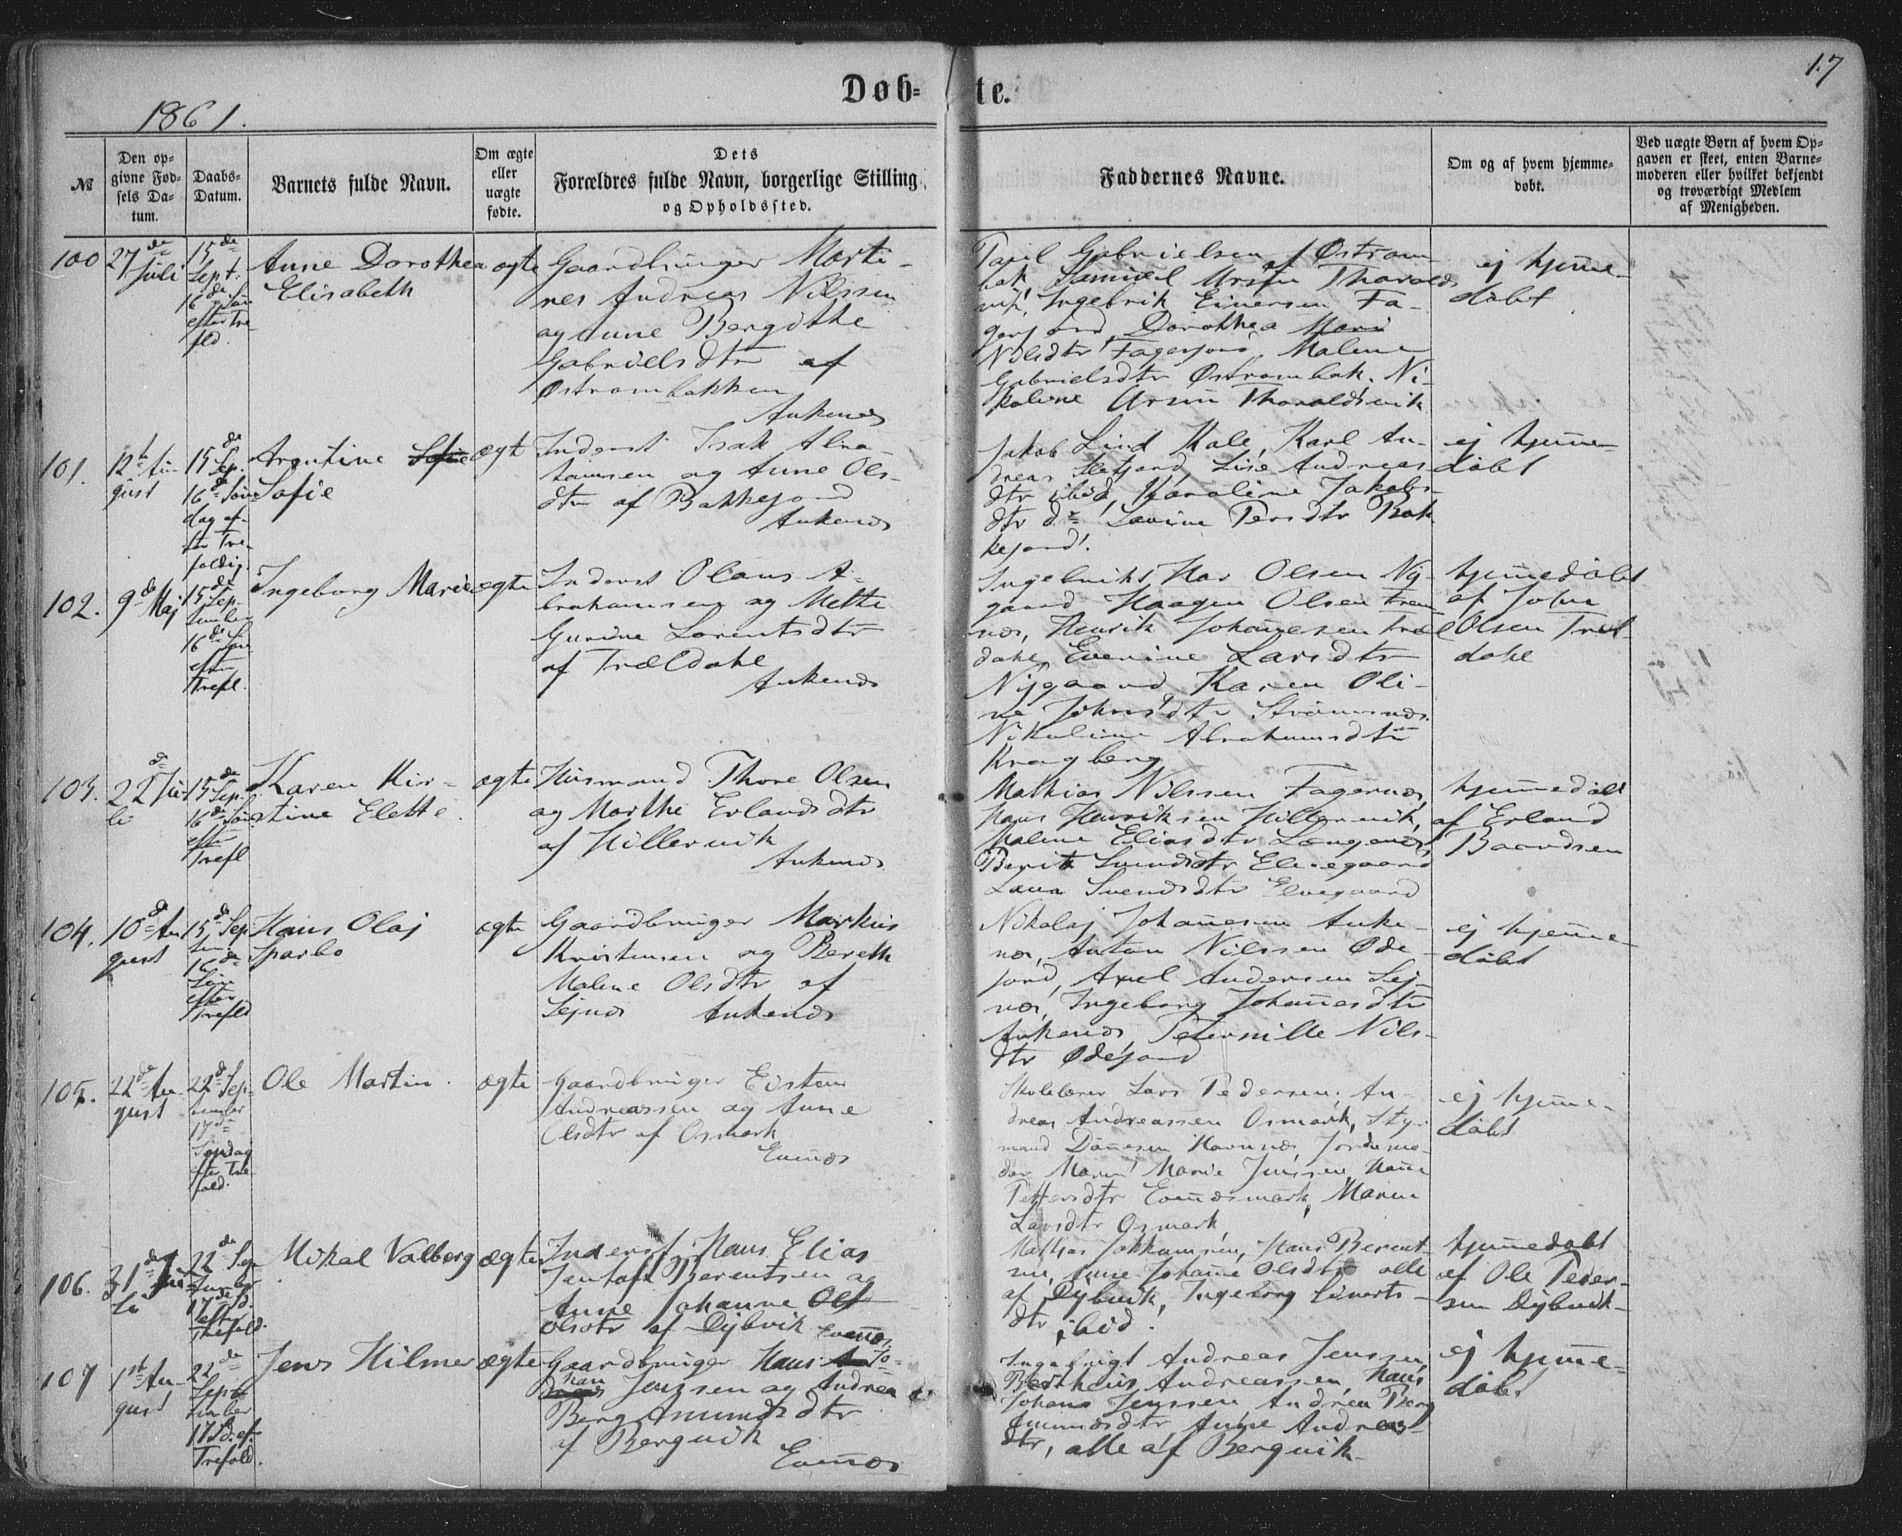 17
Døb-te.
1861.
№
Den op-
givne Fød-
sels Da-
tum.
Daabs-
Datum.
Barnets fulde Navn.
Om ægte
eller
uægte
fødte.
Dets
Forældres fulde Navn, borgerlige Stilling
og Opholdssted.
Faddernes Navne.
Om og af hvem hjemme-
døbt.
Ved uægte Børn af hvem Op-
gaven er skeet, enten Barne-
moderen eller hvilket bekjendt
og troværdigt Medlem
af Menigheden.
100
27de
Juli
15de
Sept.
16de Søn
efter Tre-
fld.
Anne Dorothea
Elisabeth
ægte
Gaardbruger Marti-
nes Andreas Nilssen
og Anne Bergithe
Gabrielsdtr af
Østrombakken
Ankenes
Gabrielsen af Østrom-
bak, Samuel Ursin Tharalds
vik, Ingebrik Einersen Fa-
gerjord, Dorothea Marie
Nilsdtr Fagerjord, Malene
Gabrielsdtr Østrombak, Ni-
koline Ursin Tharaldsvik
ej hjemme-
døbt
101.
12te Au-
gust
15de
Sep.
16de Søn
dag ef-
ter Tre-
foldig.
Arentine Sofie
Sofie
ægt
Inderst Isak Abra-
hamsen og Anne Ols-
dtr af Bakkejord
Ankenes
Jakob Lind Kale, Karl An-
dreas Lise Andreas
dtr ibid, Karoline Jakobs-
dtr do Lavine Persdtr Bak
kejord.
ej hjemme-
døbt
102.
9de Maj
15de
Sep-
tember
16de Søn
efter
Trefl.
Ingeborg Marie
ægte
Inderst Olaus A-
brahamsen og Mette
Gurine Lorentsdtr
af Trældahl
Ankenes
Ingebrikt Har Olsen Ny-
gaard Haagen Olsen Trem
næs, Henrik Johannesen Træl
dahl, Evenine Larsdtr
Nygaard Karen Oli-
ne Johnsdtr Strømsnæs
Nikoline Abrahamsdtr
Kragberg
hjemmedøbt
af John
Olsen Træl-
dahl
103.
22de Ju-
li
15de
Sep.
16de Søn
efter
Trefl
Karen Kir-
stine Elette.
ægte
Husmand Thore Olsen
og Marthe Erlandsdtr
af Hillervik
Ankenes
Mathias Nilssen Fagernæs,
Hans Henriksen Hillervik,
Malene Eliasdtr Længenæs,
Berith Svendsdtr Elvegaard
Lava Svendsdtr Elvegaard
hjemmedøbt
af Erland
Baardsen
104.
10de Au-
gust
15de Sep
tem
16de
Søn
efter
Trefld
Hans Olaj
Sparbo
ægte
Gaardbruger Markus
Kristensen og Bereth
Malene Olsdtr af
Lejnes Ankenes
Nikolaj Johannesen Anke-
næs, Anton Nilssen Øde-
jord, Axel Andersen Lej-
næs, Ingeborg Johannesdtr
Ankenes, Peternille Nils-
dtr Ødejord
ej hjemme-
døbt
105.
22de Au-
gust
22de Sep-
tember
17de
Søndag
efter Tre
fold.
Ole Martin.
ægte
Gaardbruger Eisten
Andreassen og Anne
Olsdtr af Osmark
Evenæs
Skolelærer Lars Pedersen, An-
dreas Andreassen Osmark, Sty-
mand Dånesen Havnnæs, Jordemo-
der Maren Marie Jenssen, Hanne
Pettersdtr Evenæsmark, Maren
Larsdtr Osmark
ej hjemme-
døbt
106.
31de Ju-
li
22de Sep
tember
17de S.
efter
Trefold.
Mikal Valberg
ægte
Inderst Hans Elias
Jentoft Berentsen og
Anne Johanne Ols
Olsdtr af Dybvik Evenæs
Mathias Johannesen, Hans Berent-
sen, Anne Johanne Olsdtr alle
af Dybvik, Ingeborg Einerts-
dtr ibid.
hjemmedøbt
af Ole Peder-
sen Dybvik
107
1ste Au-
gust
22de
Septe
tember
17 S. ef.
Trefold.
Jens Hilmer
ægte
Gaardbruger Hans Jo-
han Jenssen og Andrea
Berg Amundsdtr
af Bergvik
Evenæs
Ingebrigt Andreas Jenssen,
Bertheus Andreassen, Hans
Johans Jenssen Andrea Berg
Amundsdtr, Anne Andreas-
dtr, alle af Bergvik
ej hjemme-
døbt